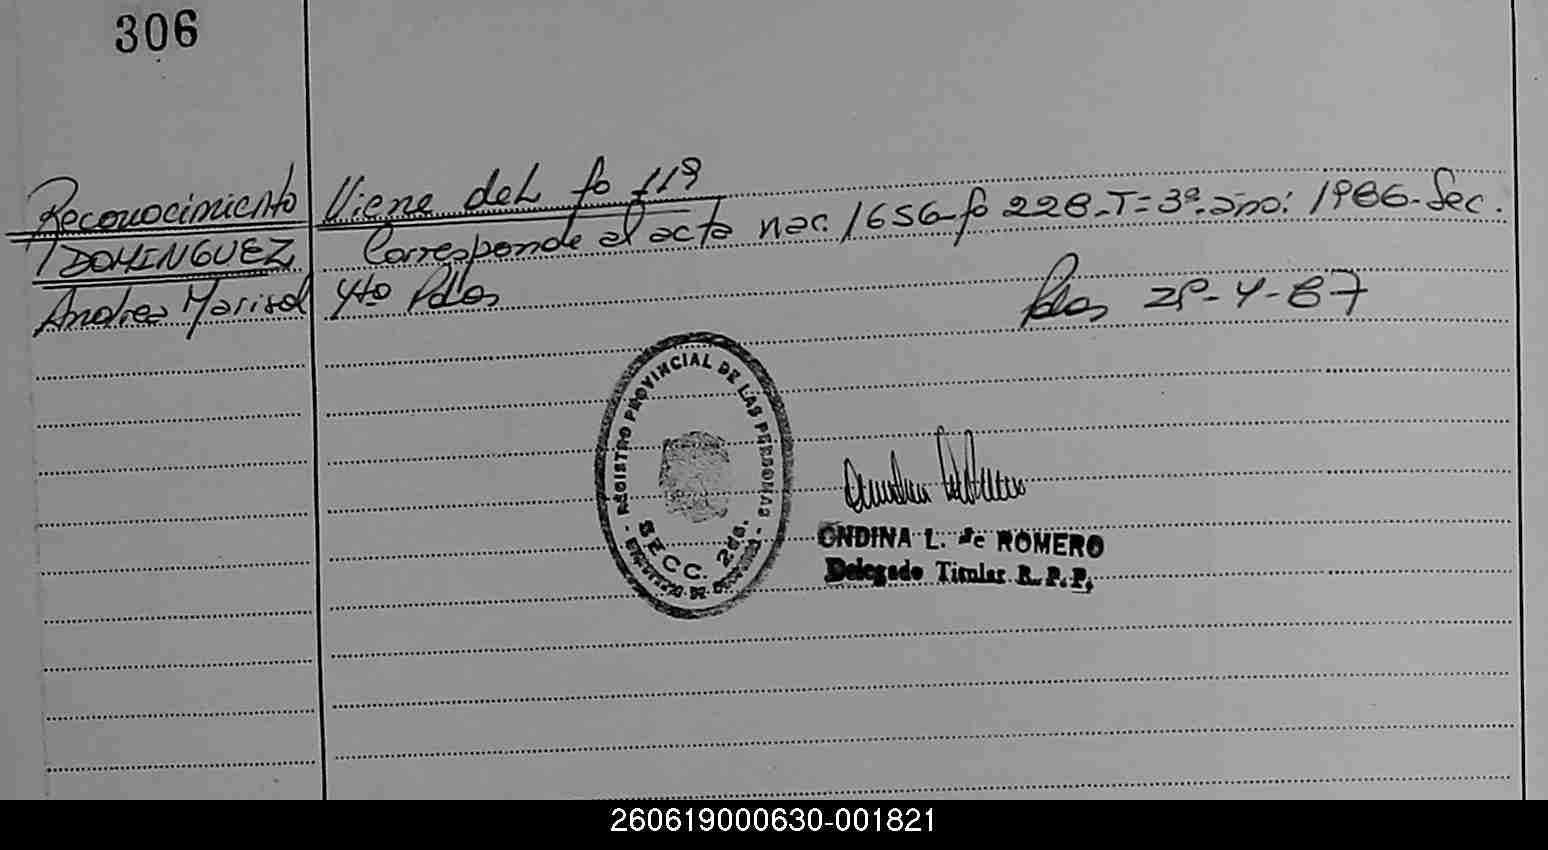 306
Reconocimiento
DOMINGUEZ
Andrea Marisol
Viene del fo 119
Corresponde al acta nac. 1656 fo 228 - T= 3º. año: 1986. Sec.
4to Pdas
Pdas 28-4-87
REGISTRO PROVINCIAL DE LAS PERSONAS
SECC. 2da.
ONDINA L. de ROMERO
Delegado Titular R. P. P.
260619000630-001821